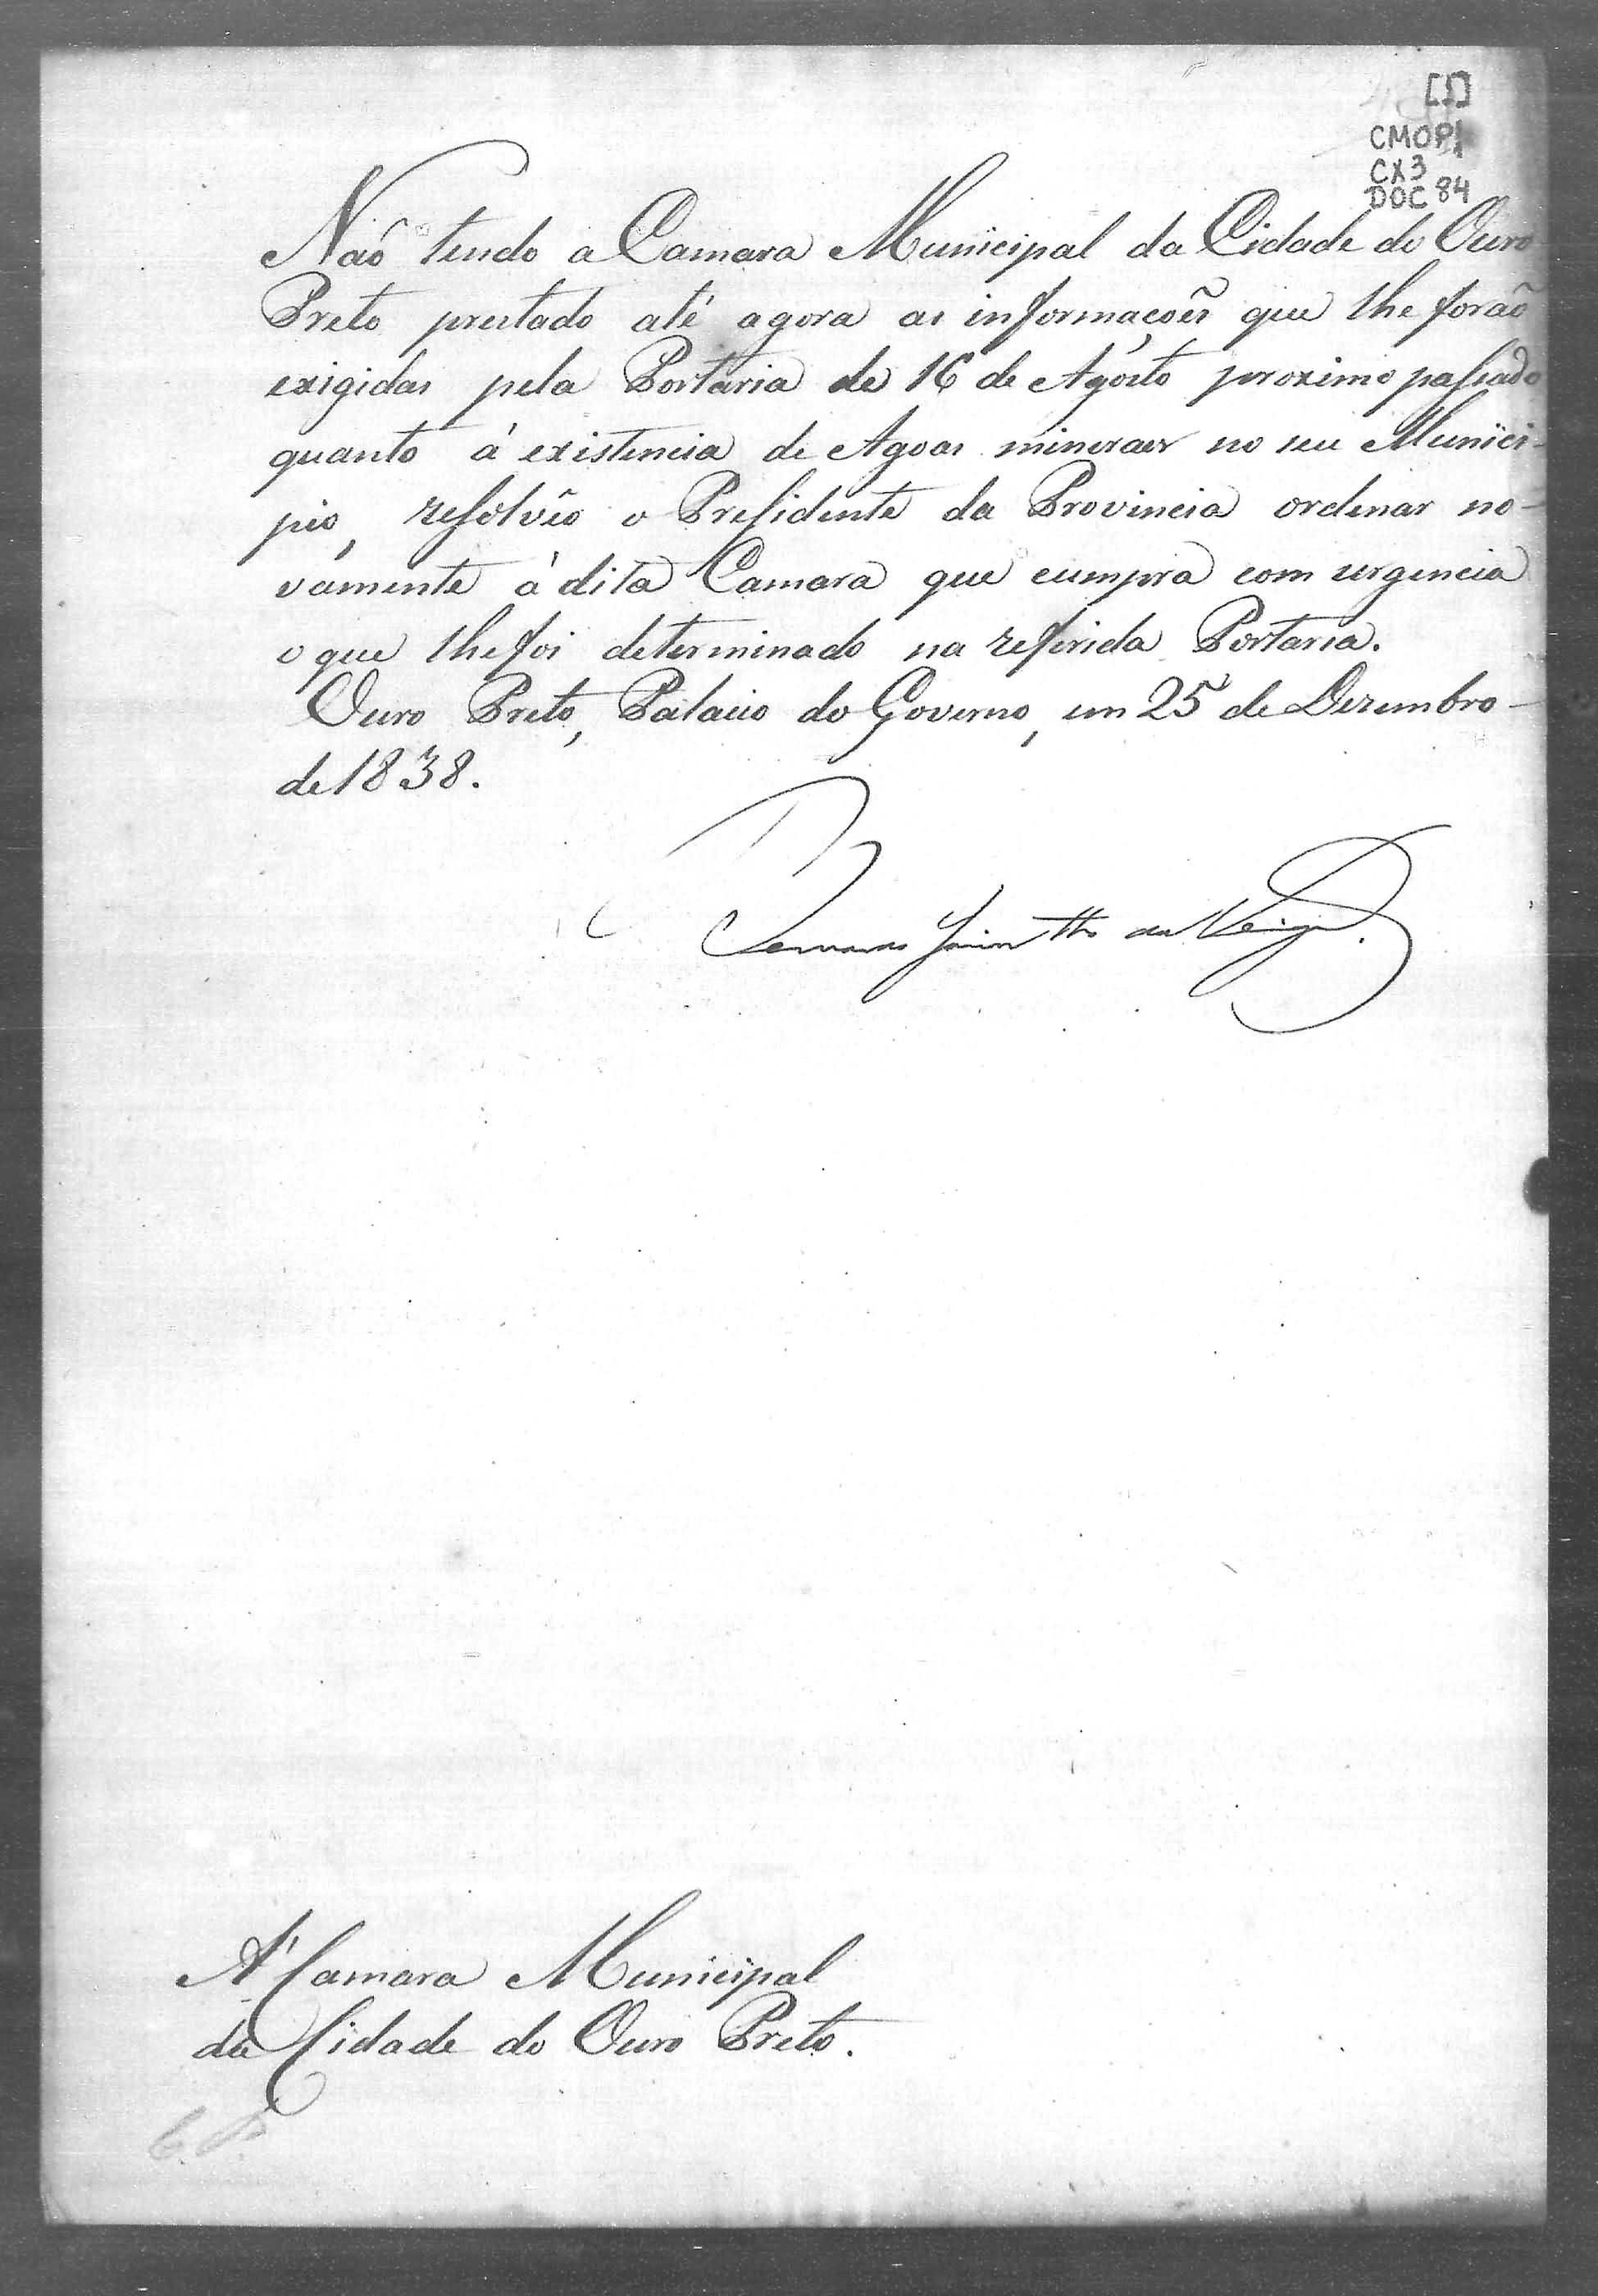 [1]
CMOP1
CX3
DOC 84
Naõ tendo a Camara Municipal da Cidade do Ouro
Preto prestado até agora as informaçoẽs que lhe foraõ
exigidas pela Portaria de 16 de Agosto proximo passado
quanto á existencia de Agoas mineraes no seu Munici-
pio, resolvêo o Presidente da Provincia ordenar no-
vamente á dita Camara que cumpra com urgencia
o que lhe foi determinado na referida Portaria.
Ouro Preto, Palacio do Governo, em 25 de Dezembro
de 1838.
Bernardo Jacintho da Veiga.
A' Camara Municipal
da Cidade do Ouro Preto.